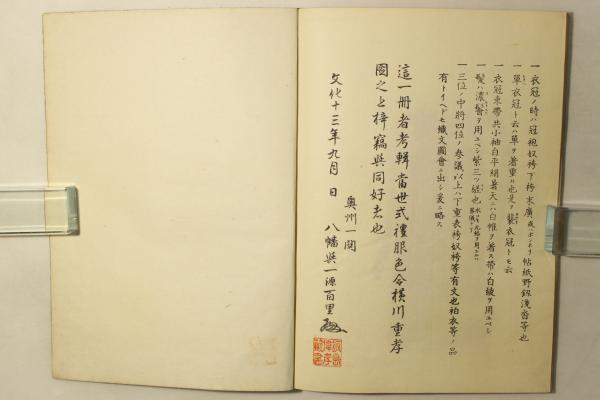 一衣冠ノ時ハ冠袍奴袴下袴末廣或ハボンボリ帖紙野釼浅沓等也
一單衣冠ト云ハ單ヲ着重ル也是ヲ襲衣冠トモ云
一衣冠束帶共小袖白平絹暑天ニハ白帷ヲ着ス帶ハ白綾ヲ用ユベシ
一髪ハ濃髻ヲ用ユベシ紫三ツ組也
一三位ノ中將四位ノ参議以上ハ下重表袴奴袴等有文也袙衣等ノ品
有トイヘドモ織文圖會ニ出シ爰ニ略ス
這一冊者考輯當世式禮服色令横川重孝
圖之上梓竊與同好者也
奥州一関
文化十三年九月 日 八幡與一源百里